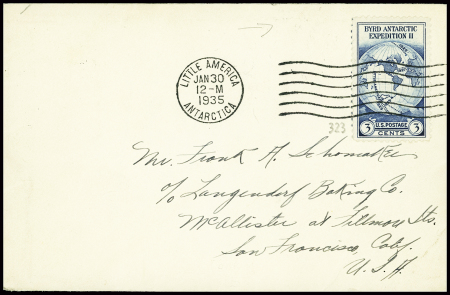 BYRD ANTARCTIC
EXPEDITION II
U.S. POSTAGE
3 CENTS 3
LITTLE AMERICA
JAN 30
12-M
1935
ANTARCTICA
323
Mr. Frank A. Schomaker
c/o Langendorf Baking Co.
McAllister at Fillmore Sts.
San Francisco, Calif.
U.S.A.